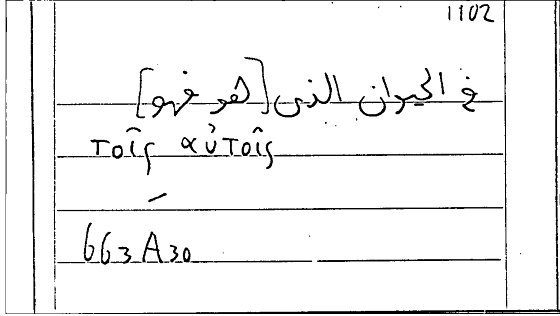 1102
في الحيوان الذى [هو فهو]
τοῖς αὐτοῖς
663A30